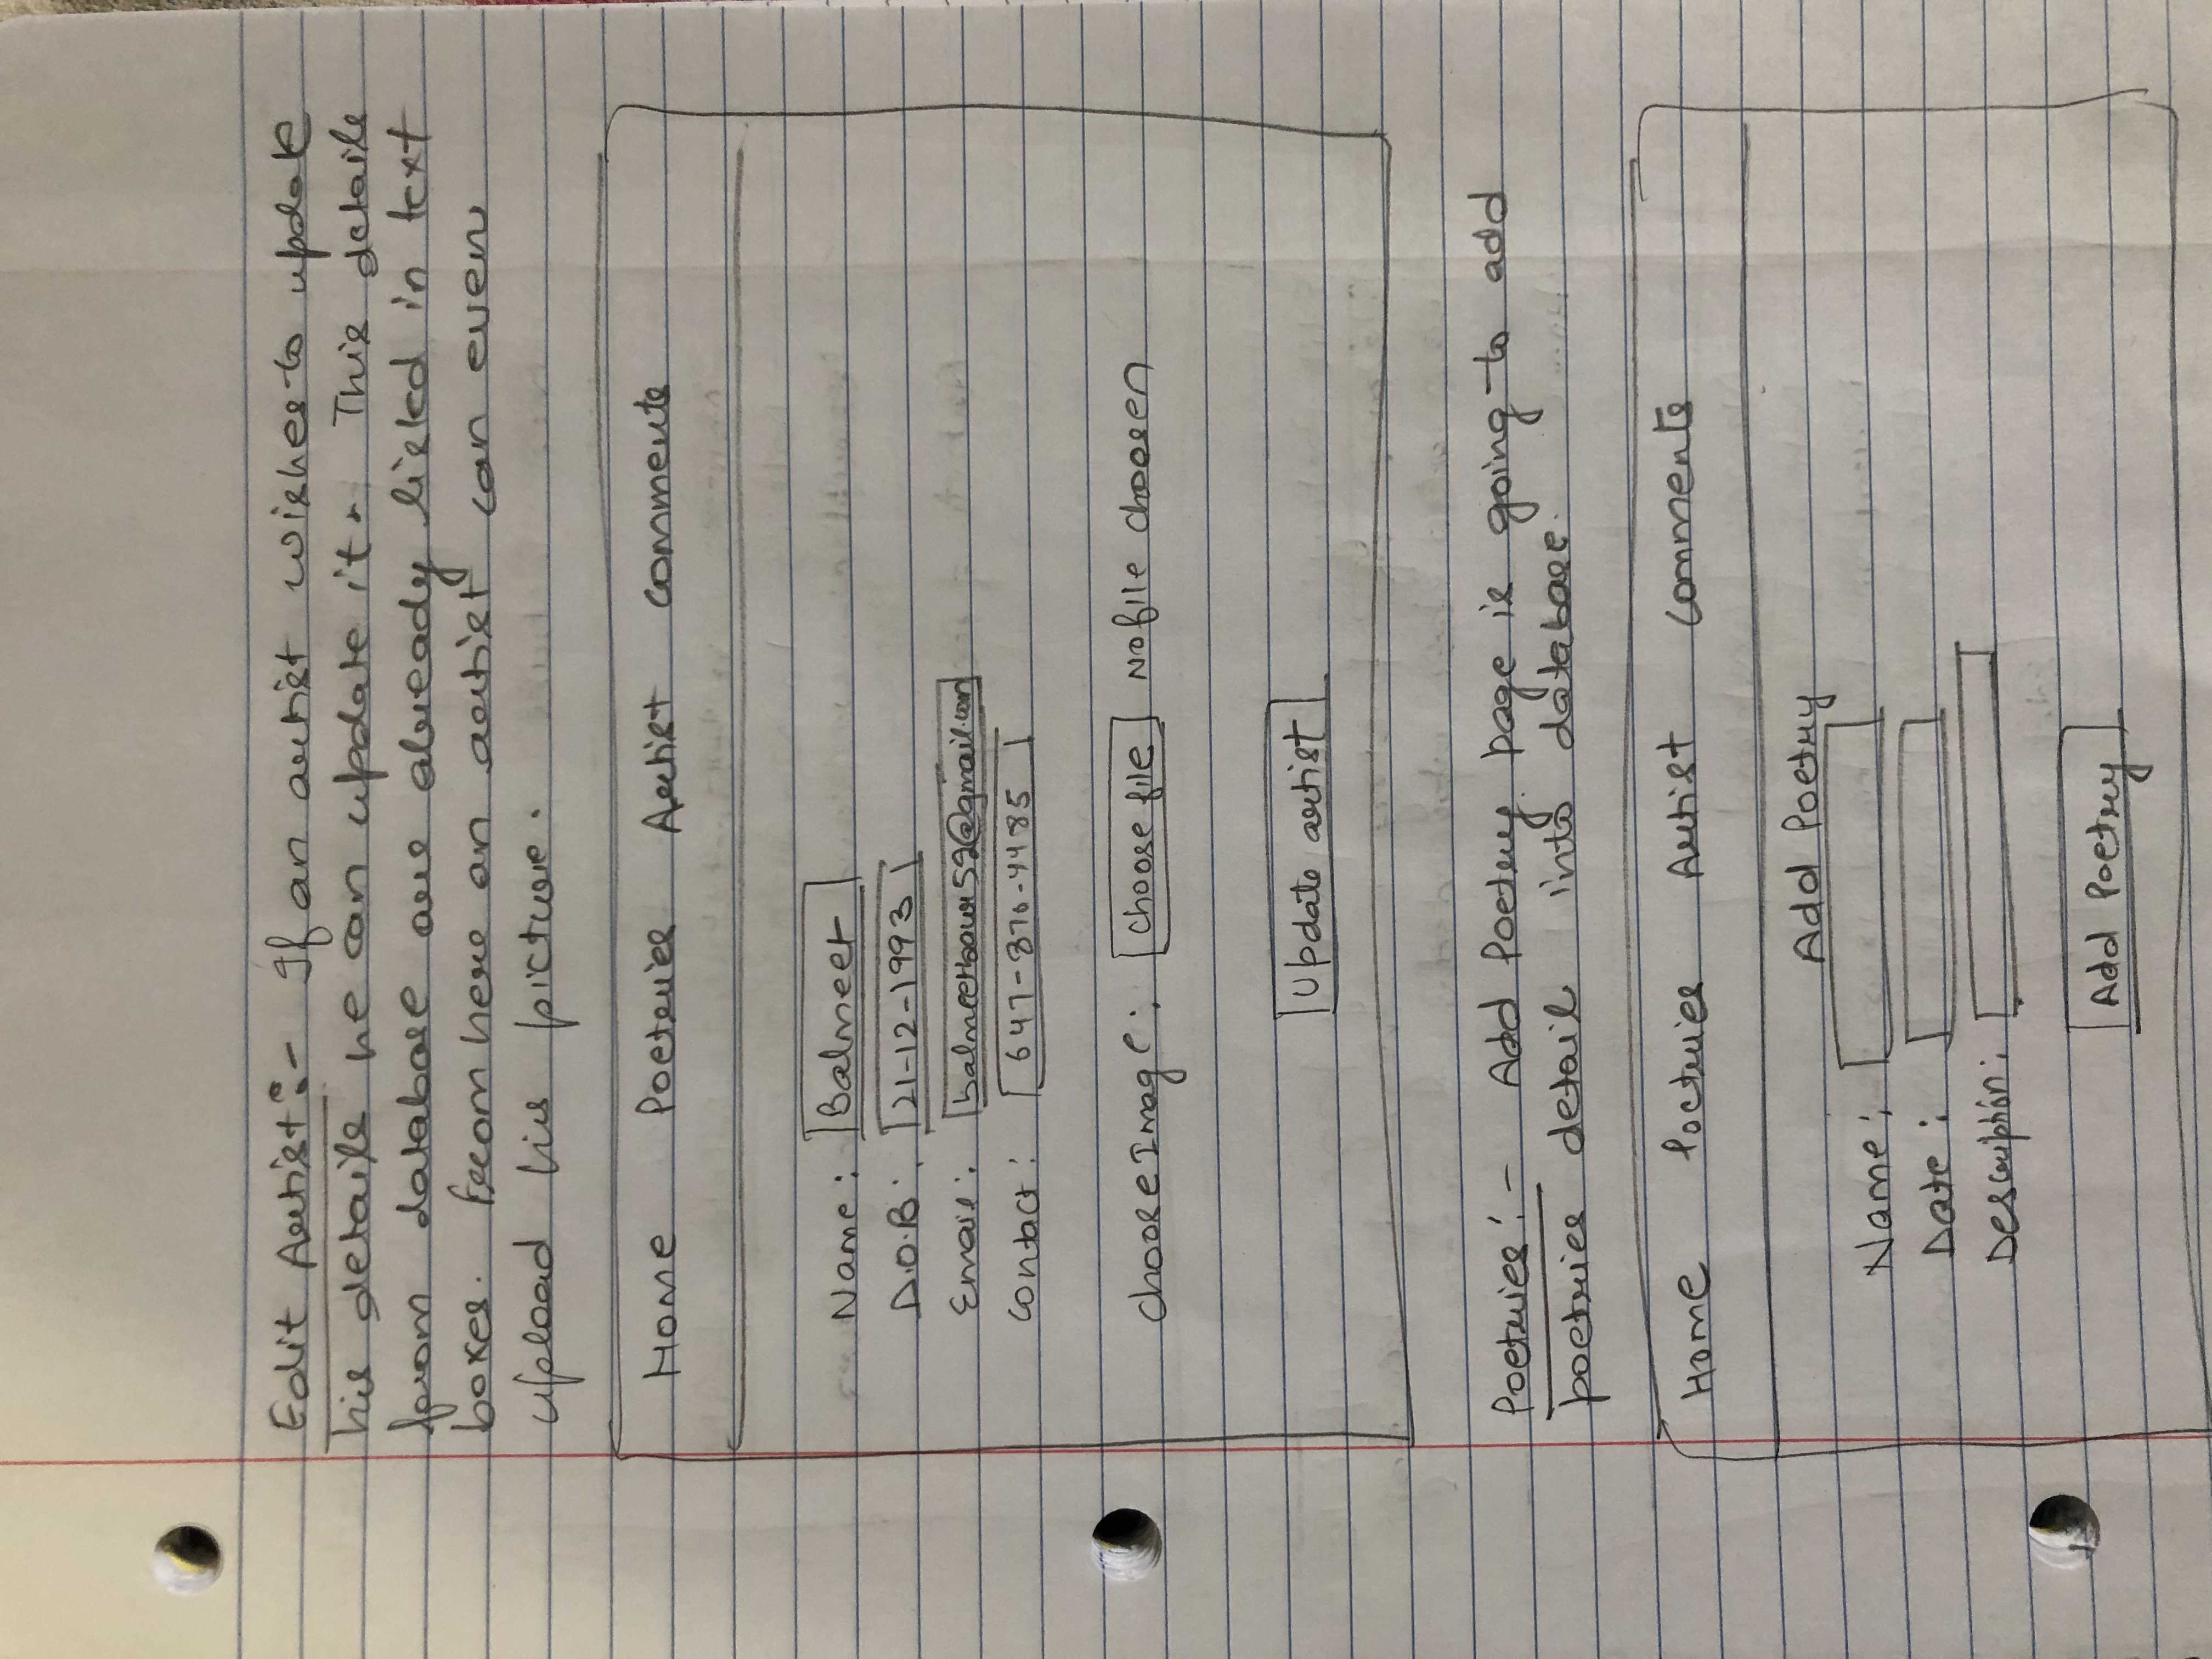 Edit Artist :- If an artist wishes to update
his details he can update it. This details
from database are already listed in text
boxes. From here an artist can even
upload his picture.
Home Poetries Artist Comments
Name: Balmeet
D.O.B: 21-12-1993
Email: balmeetkaur52@gmail.com
Contact: 647-870-4485
Choose Image: Choose file No file choosen
Update artist
Poetries :- Add Poetry page is going to add
poetries detail into database.
Home Poetries Artist Comments
Add Poetry
Name:
Date:
Description:
Add Poetry